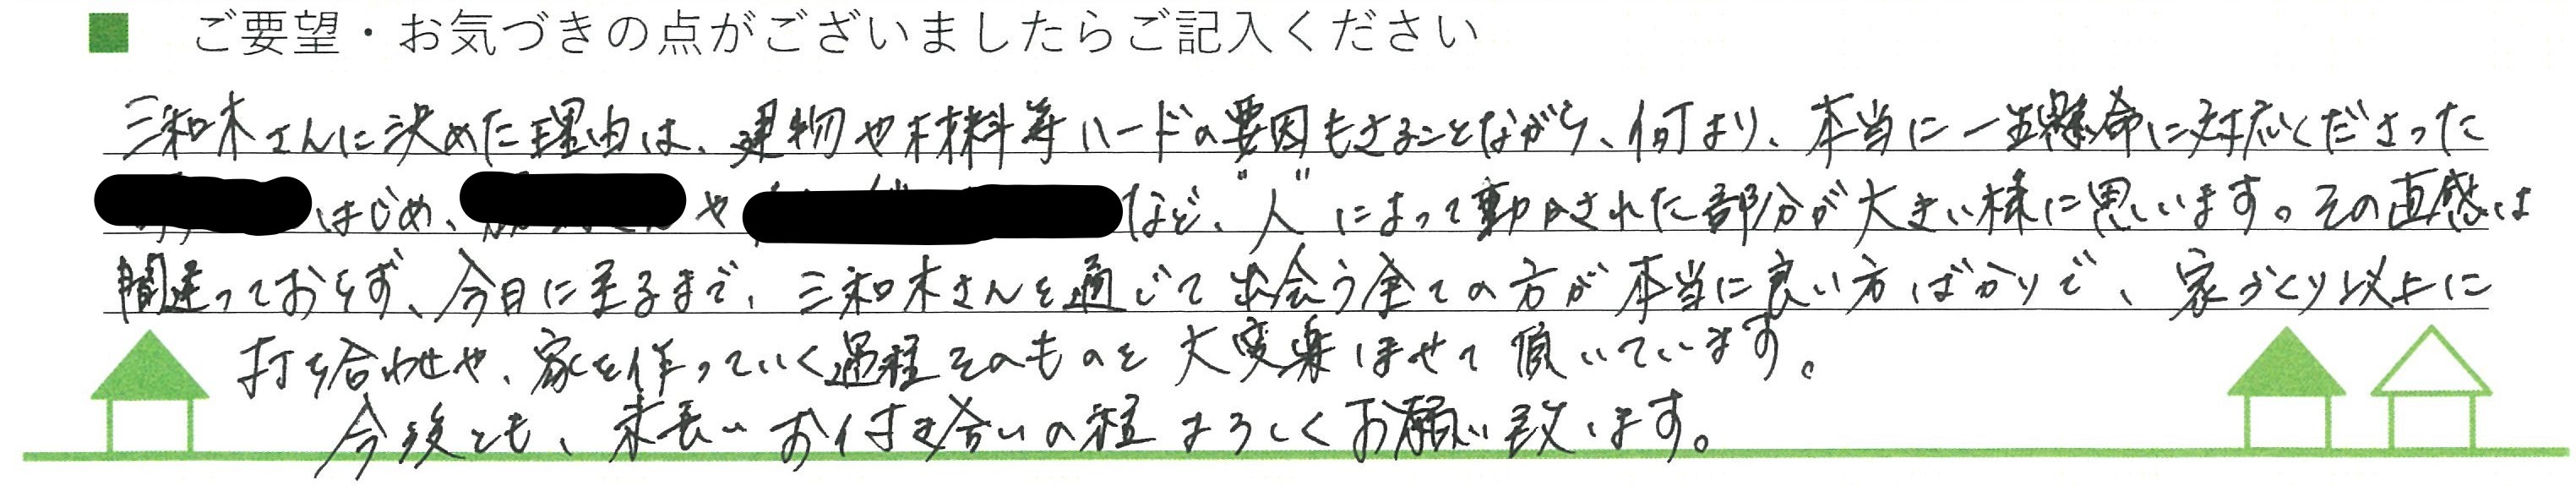 ■ ご要望・お気づきの点がございましたらご記入ください
三和木さんに決めた理由は、建物や木材料等ハードの要因もさることながら、何より、本当に一生懸命に対応くださった
はじめ、や など、"人"によって動かされた部分が大きい様に思います。その直感は
間違っておらず、今日に至るまで、三和木さんを通じて出会う全ての方が本当に良い方ばかりで、家づくり以上に
打ち合わせや、家を作っていく過程そのものを大変楽しませて頂いています。
今後とも、末長いお付き合いの程よろしくお願い致します。